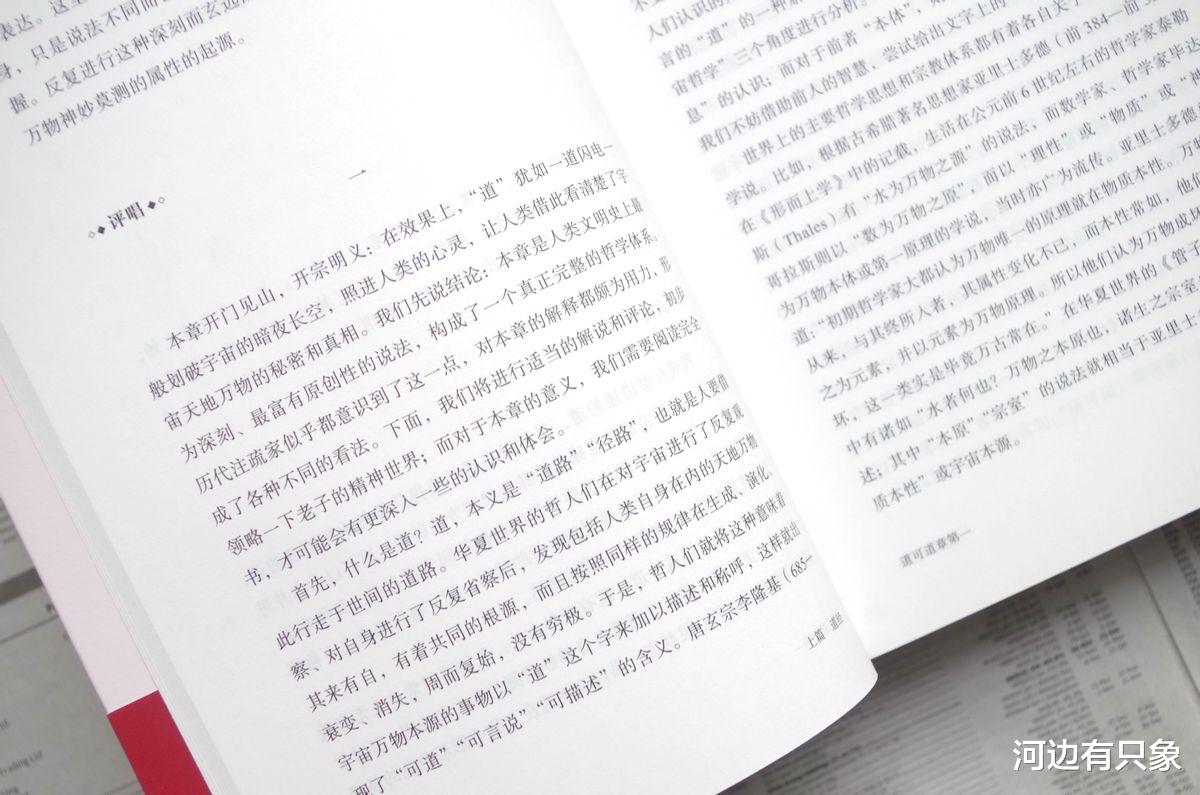 表达。这里
身，只是说法不同而
握。反复进行这种深刻而玄远
万物神妙莫测的属性的起源。
一
评唱
本章开门见山，开宗明义：在效果上，“道”犹如一道闪电一
般划破宇宙的暗夜长空，照进人类的心灵，让人类借此看清楚了宇
宙天地万物的秘密和真相。我们先说结论：本章是人类文明史上最
为深刻、最富有原创性的说法，构成了一个真正完整的哲学体系。
历代注疏家似乎都意识到了这一点，对本章的解释都颇为用力，形
成了各种不同的看法。下面，我们将进行适当的解说和评论，初步
领略一下老子的精神世界；而对于本章的意义，我们需要阅读完全
书，才可能会有更深入一些的认识和体会。
首先，什么是道？道，本义是“道路”“径路”，也就是人要借
此行走于世间的道路。华夏世界的哲人们在对宇宙进行了反复观
察、对自身进行了反复省察后，发现包括人类自身在内的天地万物
其来有自，有着共同的根源，而且按照同样的规律在生成、演化、
衰变、消失，周而复始，没有穷极。于是，哲人们就将这种意味着
宇宙万物本源的事物以“道”这个字来加以描述和称呼，这样就出
现了“可道”“可言说”“可描述”的含义。唐玄宗李隆基（685—
上篇 道经
人们认识的
言的“道”的一种
宙哲学”三个角度进行分析。
息”的认识；而对于前者“本体”，
我们不妨借助前人的智慧，尝试给出文字上的
世界上的主要哲学思想和宗教体系都有着各自关于
学说。比如，根据古希腊著名思想家亚里士多德（前384—前3
在《形而上学》中的记载，生活在公元前6世纪左右的哲学家泰勒
斯（Thales）有“水为万物之源”的说法，而数学家、哲学家毕达
哥拉斯则以“数为万物之原”，而以“理性”或“物质”或“神
为万物本体或第一原理的学说，当时亦广为流传。亚里士多德
道：“初期哲学家大都认为万物唯一的原理就在物质本性。万物
从来，与其终所入者，其属性变化不已，而本性常如，他们
之为元素，并以元素为万物原理。所以他们认为万物成
坏，这一类实是毕竟万古常在。”在华夏世界的《管子
中有诸如“水者何也？万物之本原也，诸生之宗室
述；其中“本原”“宗室”的说法就相当于亚里士
质本性”或宇宙本源。
道可道章第一
Trading Ltd
河边有只象